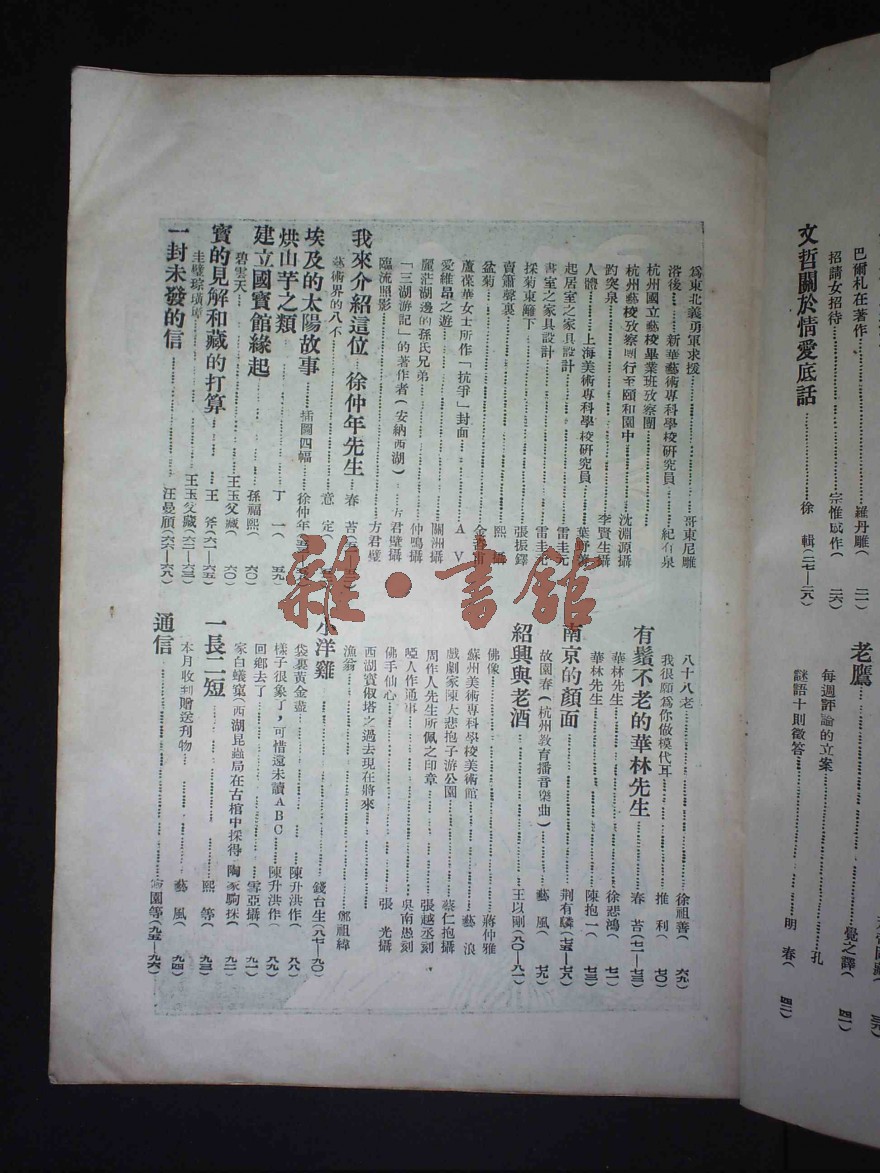 文哲關於情愛底話
徐
輯(二七—二八)
招請女招待
宗惟賡作(
二六)
巴爾札在著作
羅丹雕(
二一)
老鷹
覺之譯(
四一)
每週評論的立案
孔
謎語十則徵答
明
春(
四二)
為東北義勇軍求援
哥東尼雕
浴後
新華藝術專科學校研究員
紀有泉
杭州國立藝校畢業班攷察團
杭州藝校攷察團行至頤和園中
沈淵源攝
趵突泉
李賢生攝
人體
上海美術專科學校研究員
起居室之家具設計
雷圭元
書室之家具設計
雷圭元
採菊東籬下
張振鐸
賣蕭聲裏
熙
攝
盆菊
蘆葆華女士所作「抗爭」封面
A
V
愛維昂之遊
關洲攝
麗茫湖邊的孫氏兄弟
仲鳴攝
「三湖游記」的著作者(安納西湖)
方君璧攝
臨流照影
方君璧
我來介紹這位
徐仲年先生
春
苔
藝術界的八不
意
定
埃及的太陽故事
插圖四幅
徐仲年
烘山芋之類
丁
一(
五九)
建立國寶館緣起
孫福熙(
六〇)
碧雲天
王玉父藏(
六〇)
寶的見解和藏的打算
王
斧(六一—六五)
圭璧琮璜璋
王玉父藏(六二—六三)
一封未發的信
汪曼頎(六六—六八)
八十八老
徐祖善(
六九)
我很願爲你做模代耳
推
利(
七〇)
有鬚不老的華林先生
春
苔(七一—七三)
華林先生
徐悲鴻(
七一)
華林先生
陳抱一(
七三)
南京的顏面
荆有麟(七五—七八)
故園春(杭州敎育播音樂曲)
藝
風(
七九)
紹興與老酒
王以剛(八〇—八一)
佛像
蔣仲雅
蘇州美術專科學校美術館
藝
浪
戲劇家陳大悲抱子游公園
蔡仁抱攝
周作人先生所佩之印章
張越丞刻
啞人作通事
吳南愚刻
佛手仙心
張
光攝
西湖寶俶塔之過去現在將來
漁翁
鄭祖緯
小洋雞
錢台生(八七—九〇)
袋裏黃金盡
陳升洪作(
八八)
樣子很象了,可惜還未讀ABC
陳升洪作(
八九)
回鄉去了
雪亞攝(
九一)
家白蟻窠,西湖昆蟲局在古棺中採得
陶家駒採(
九二)
一長二短
熙
等(
九三)
本月收到贈送刊物
藝
風(
九四)
通信
園等(九五—九六)
雜·書館